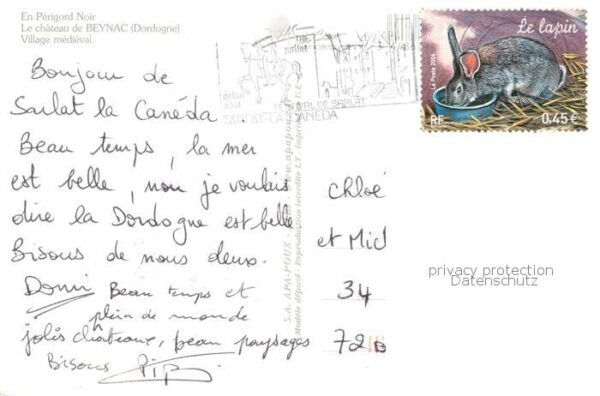 En Périgord Noir
Le château de BEYNAC (Dordogne)
Village médiéval.
Bonjour de
Sarlat la Canéda
Beau temps, la mer
est belle, non je voulais
dire la Dordogne est belle
Bisous de nous deux.
Domi Beau temps et
plein de monde
jolis châteaux, beau paysages
Bisous Pip
juillet
début
août
FESTIVAL DE SARLAT
SARLAT-LA-CANEDA
S.A. APA-POUX
Modèle déposé - Reproduction interdite
Le lapin
La Poste
RF 0,45€
Chloé
et Mic
34
72
privacy protection
Datenschutz